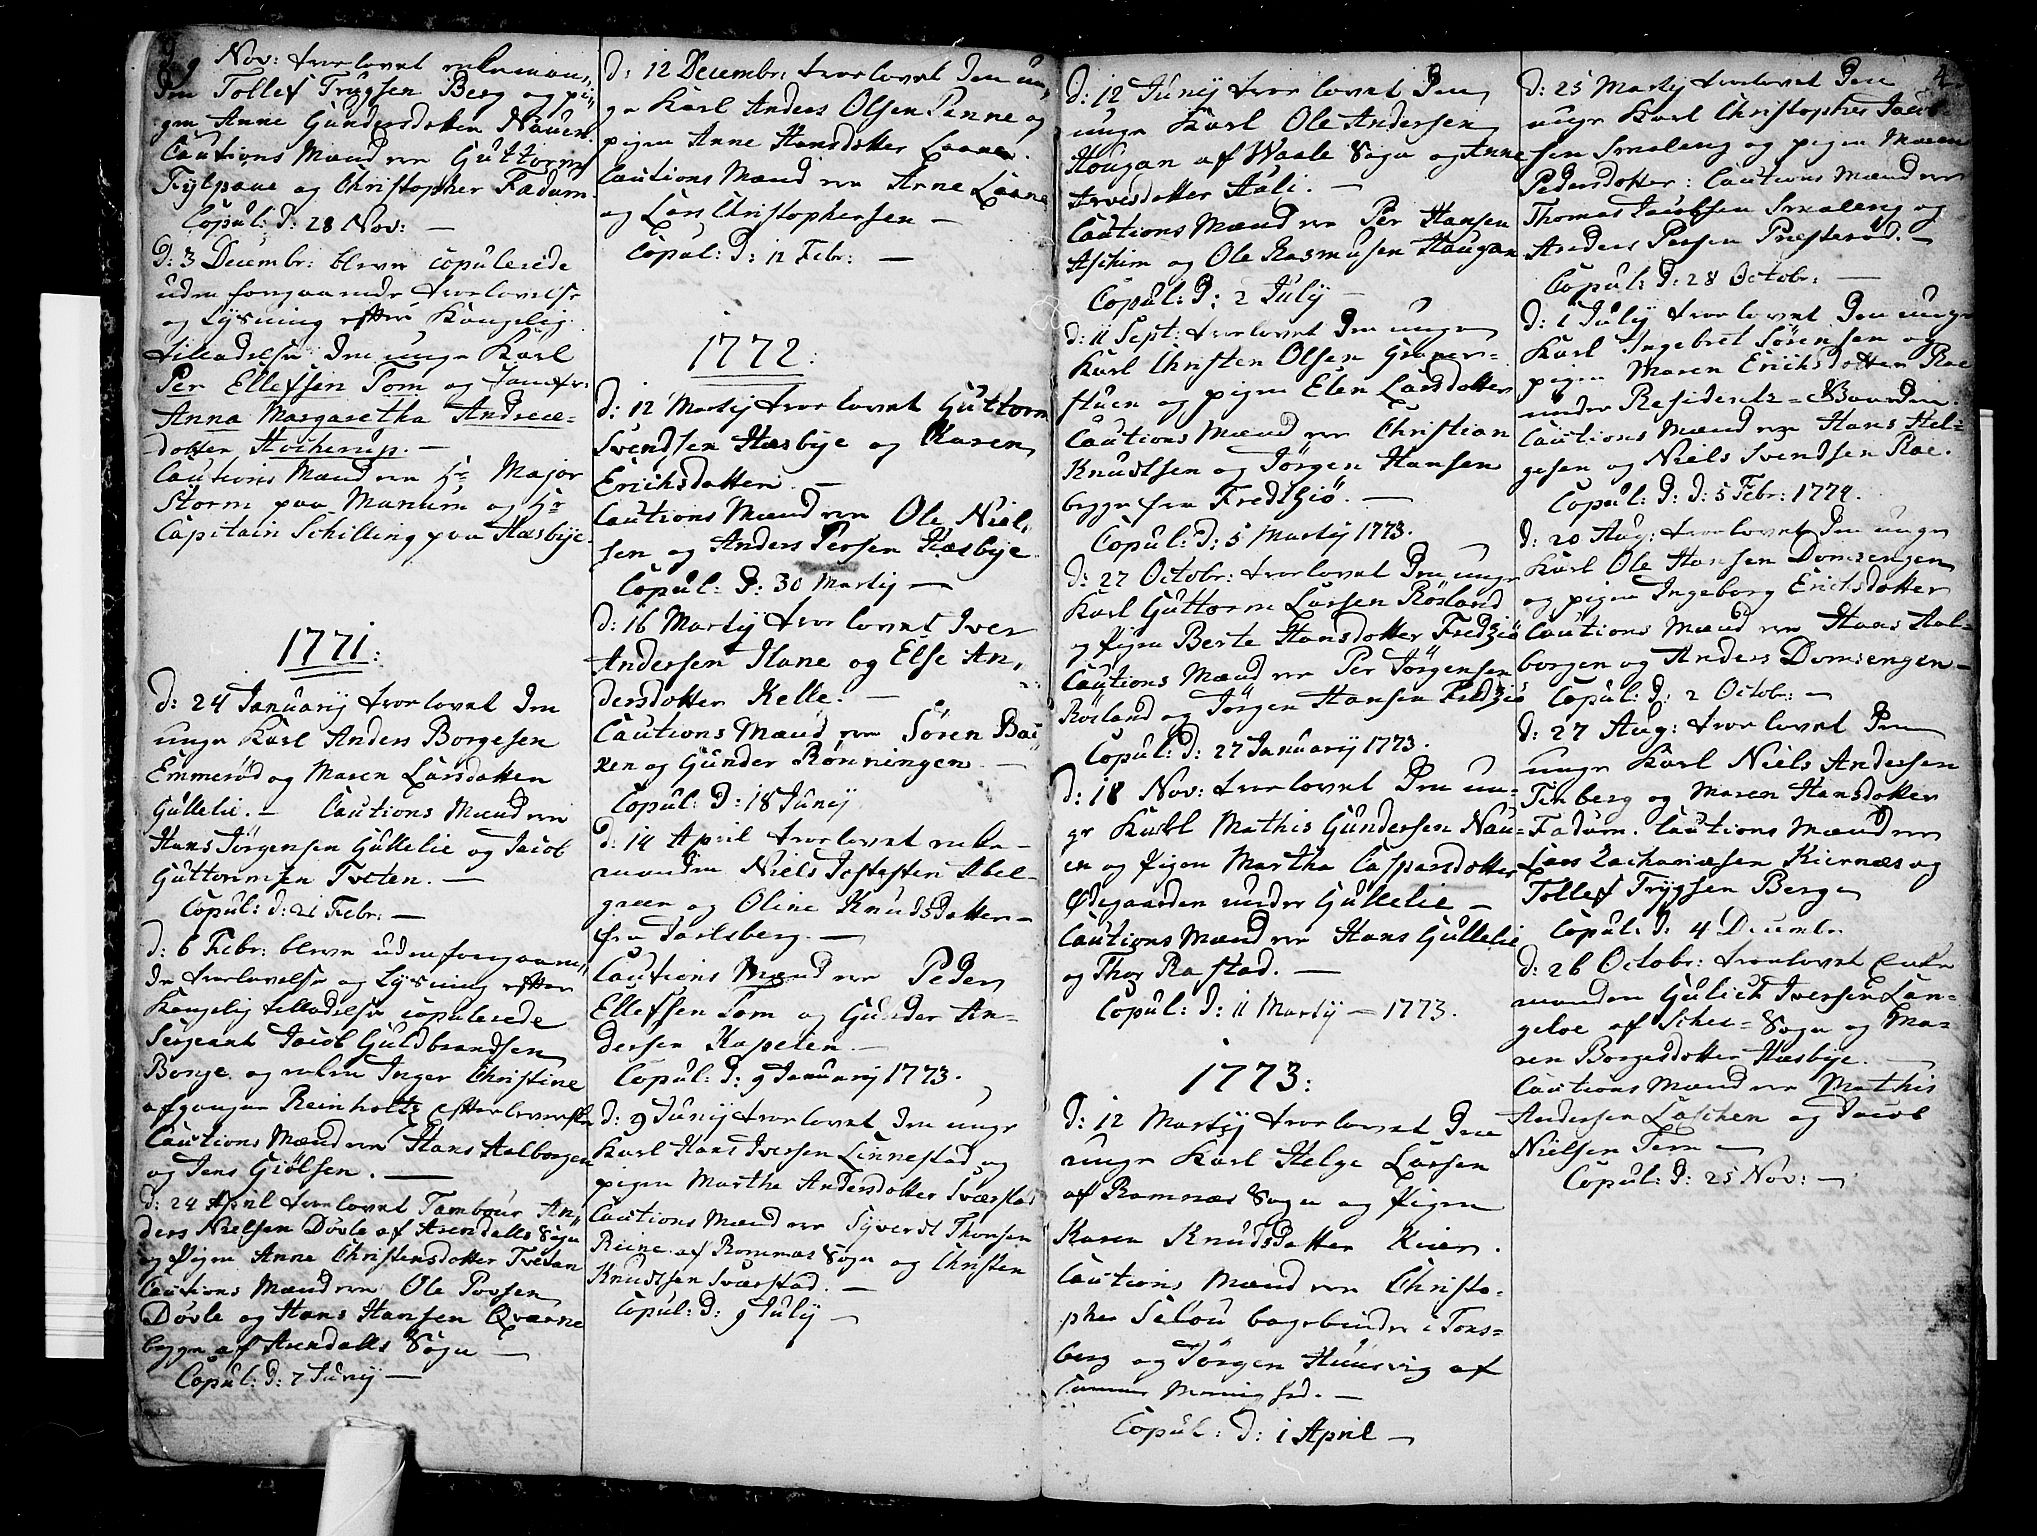 9 Nov: trorlovet enkeman,,
den Tollef Trygsen Berg og pi,,
gen Anne Gundersdotter Nauen
Cautions Mænd ere Guttorm
Fylpaae og Christopher Fadum
Copul: d: 28 Nov: —
d: 3 Decembr: bleve copulerede
uden foregaaende trolovelse
og Lysning efter Kongelig
tilladelse den unge Karl
Per Ellefsen Tom og Jomfr:
Anna Margaretha Andreæ=
dotter Hocherup. —
Cautions Mænd ere Hr Major
Storm paa Manum og Hr
Capitain Schilling paa Hæsbye.
1771:
d: 24 Januarij trorlovet den
unge Karl Anders Borgesen
Emmerød og Maren Larsdotter
Gullelie. — Cautions Mænd ere
Hans Jörgensen Gullelie og Jacob
Guttormsen Tveten. —
Copul: d: 21 Febr: —
d: 6 Febr: bleve uden foregaaen,,
de trorlovelse og Lysning efter
Kongelig tilladelse copulerede
Sergeant Jacob Guldbrandsen
Borge og enken Inger Christine
afgangne Reinholts Efterleverske
Cautions Mænd ere Hans Aalborgen
og Jens Giölsen. —
d: 24 April trorlovet Tambour An,,
ders Nielsen Dövle af Arendalls Sogn
og Pigen Anne Christensdotter Tvetan
Cautions Mænd ere Ole Povsen
Dövle og Hans Hansen Qværne
bygge af Arendalls Sogn —
Copul: d: 7 Junij —
d: 12 Decembr: trorlovet den un,,
ge Karl Anders Olsen Penne og
pigen Anne Hansdotter Laane.
Cautions Mænd ere Arne Laane
og Lars Christophersen —
Copul: d: 12 Febr: —
1772:
d: 12 Martij trorlovet Guttorm
Svendsen Hæsbye og Karen
Erichsdotter. —
Cautions Mænd ere Ole Niel,,
sen og Anders Persen Hæsbye
Copul: d: 30 Martij —
d: 16 Martij trorlovet Iver
Andersen Ilane og Else An,,
dersdotter Kelle. —
Cautions Mænd ere Sören Bac
ken og Gunder Rönningen —
Copul: d: 18 Junij
d: 14 April trorlovet enke-
manden Niels Jostesen Abel-
green og Oline Knudsdotter —
fra Jarlsberg. —
Cautions Mænd ere Peder
Ellefsen Tom og Gunder An-
dersen Kapelen —
Copul: d: 9 Januarij 1773.
d: 9 Junij trorlovet den unge
Karl Hans Iversen Linnestad og
pigen Marthe Andersdotter Sværstad
Cautions Mænd ere Syverdt Thorsen
Reine af Romnæs Sogn og Christen
Knudtsen Sværstad. —
Copul: d: 9 Julij —
d: 12 Junij trorlovet den
unge Karl Ole Andersen
Hougan af Waale Sogn og Anne
Arvesdotter Huli. —
Cautions Mænd ere Per Hansen
Aschim og Ole Rasmusen Haugan
Copul: d: 2 Julij —
d: 11 Sept: trorlovet den unge
Karl Christen Olsen Graner=
stuen og pigen Elen Larsdotter
Cautions Mænd ere Christian
Knudtsen og Jörgen Hansen
begge fra Fredtziö. —
Copul: d: 5 Martij 1773.
d: 27 Octobr: trorlovet den unge
Karl Guttorm Larsen Rösland
og Pigen Berte Hansdotter Fredziö
Cautions Mænd ere Per Jörgensen
Rösland og Jörgen Hansen Fredziö
Copul: d: 27 Januarij 1773.
d: 18 Nov: trorlovet den un-
ge Karl Mathis Gundersen Nau-
en og Pigen Martha Caspersdotter
Ødegaarden under Gullelie —
Cautions Mænd ere Hans Gullelie
og Thor Rastad. —
Copul: d: 11 Martij — 1773.
1773:
d: 12 Martij trorlovet den
unge Karl Helge Larsen
af Ramnæs Sogn og Pigen
Karen Knudsdotter Kier.
Cautions Mænd ere Christo-
pher Selou bogebinder i Tons=
berg og Jörgen Huusvig af
samme Menighed. —
Copul: d: 1 April —
4
d: 25 Martij trorlovet den
unge Karl Christopher Jacob-
sen Smaleng og pigen Maren
Pedersdotter: Cautions Mænd ere
Thomas Jacobsen Smaleng og
Anders Persen Præsteröd. —
Copul: d: 28 Octobr: —
d: 1 Julij trorlovet den unge
Karl Ingebret Sörensen og
pigen Maren Erichsdotter Roe
under Residentz=Gaarden.
Cautions Mænd ere Hans Hel=
gesen og Niels Svendsen Roe.
Copul: d: d: 5 Febr: 1774.
d: 20 Aug: trorlovet den unge
Karl Ole Hansen Domsengen
og pigen Ingeborg Erichsdotter
Cautions Mænd ere Hans Aal-
borgen og Anders Domsengen —
Copul: d: 2 Octobr: —
d: 27 Aug: trorlovet den
unge Karl Niels Andersen
Tinberg og Maren Hansdotter
Fadum. Cautions Mænd ere
Lars Zachariæsen Kiernæs og
Tollef Trygsen Berge
Copul: d: 4 Decembr
d: 26 Octobr: trorlovet Enke
manden Gulich Iversen Lan-
geloe af Schee=Sogn og Ma-
ren Borgesdotter Hæsbye. —
Cautions Mænd ere Mathis
Andersen Laschen og Jacob
Nielsen Tem —
Copul: d: 25 Nov: —